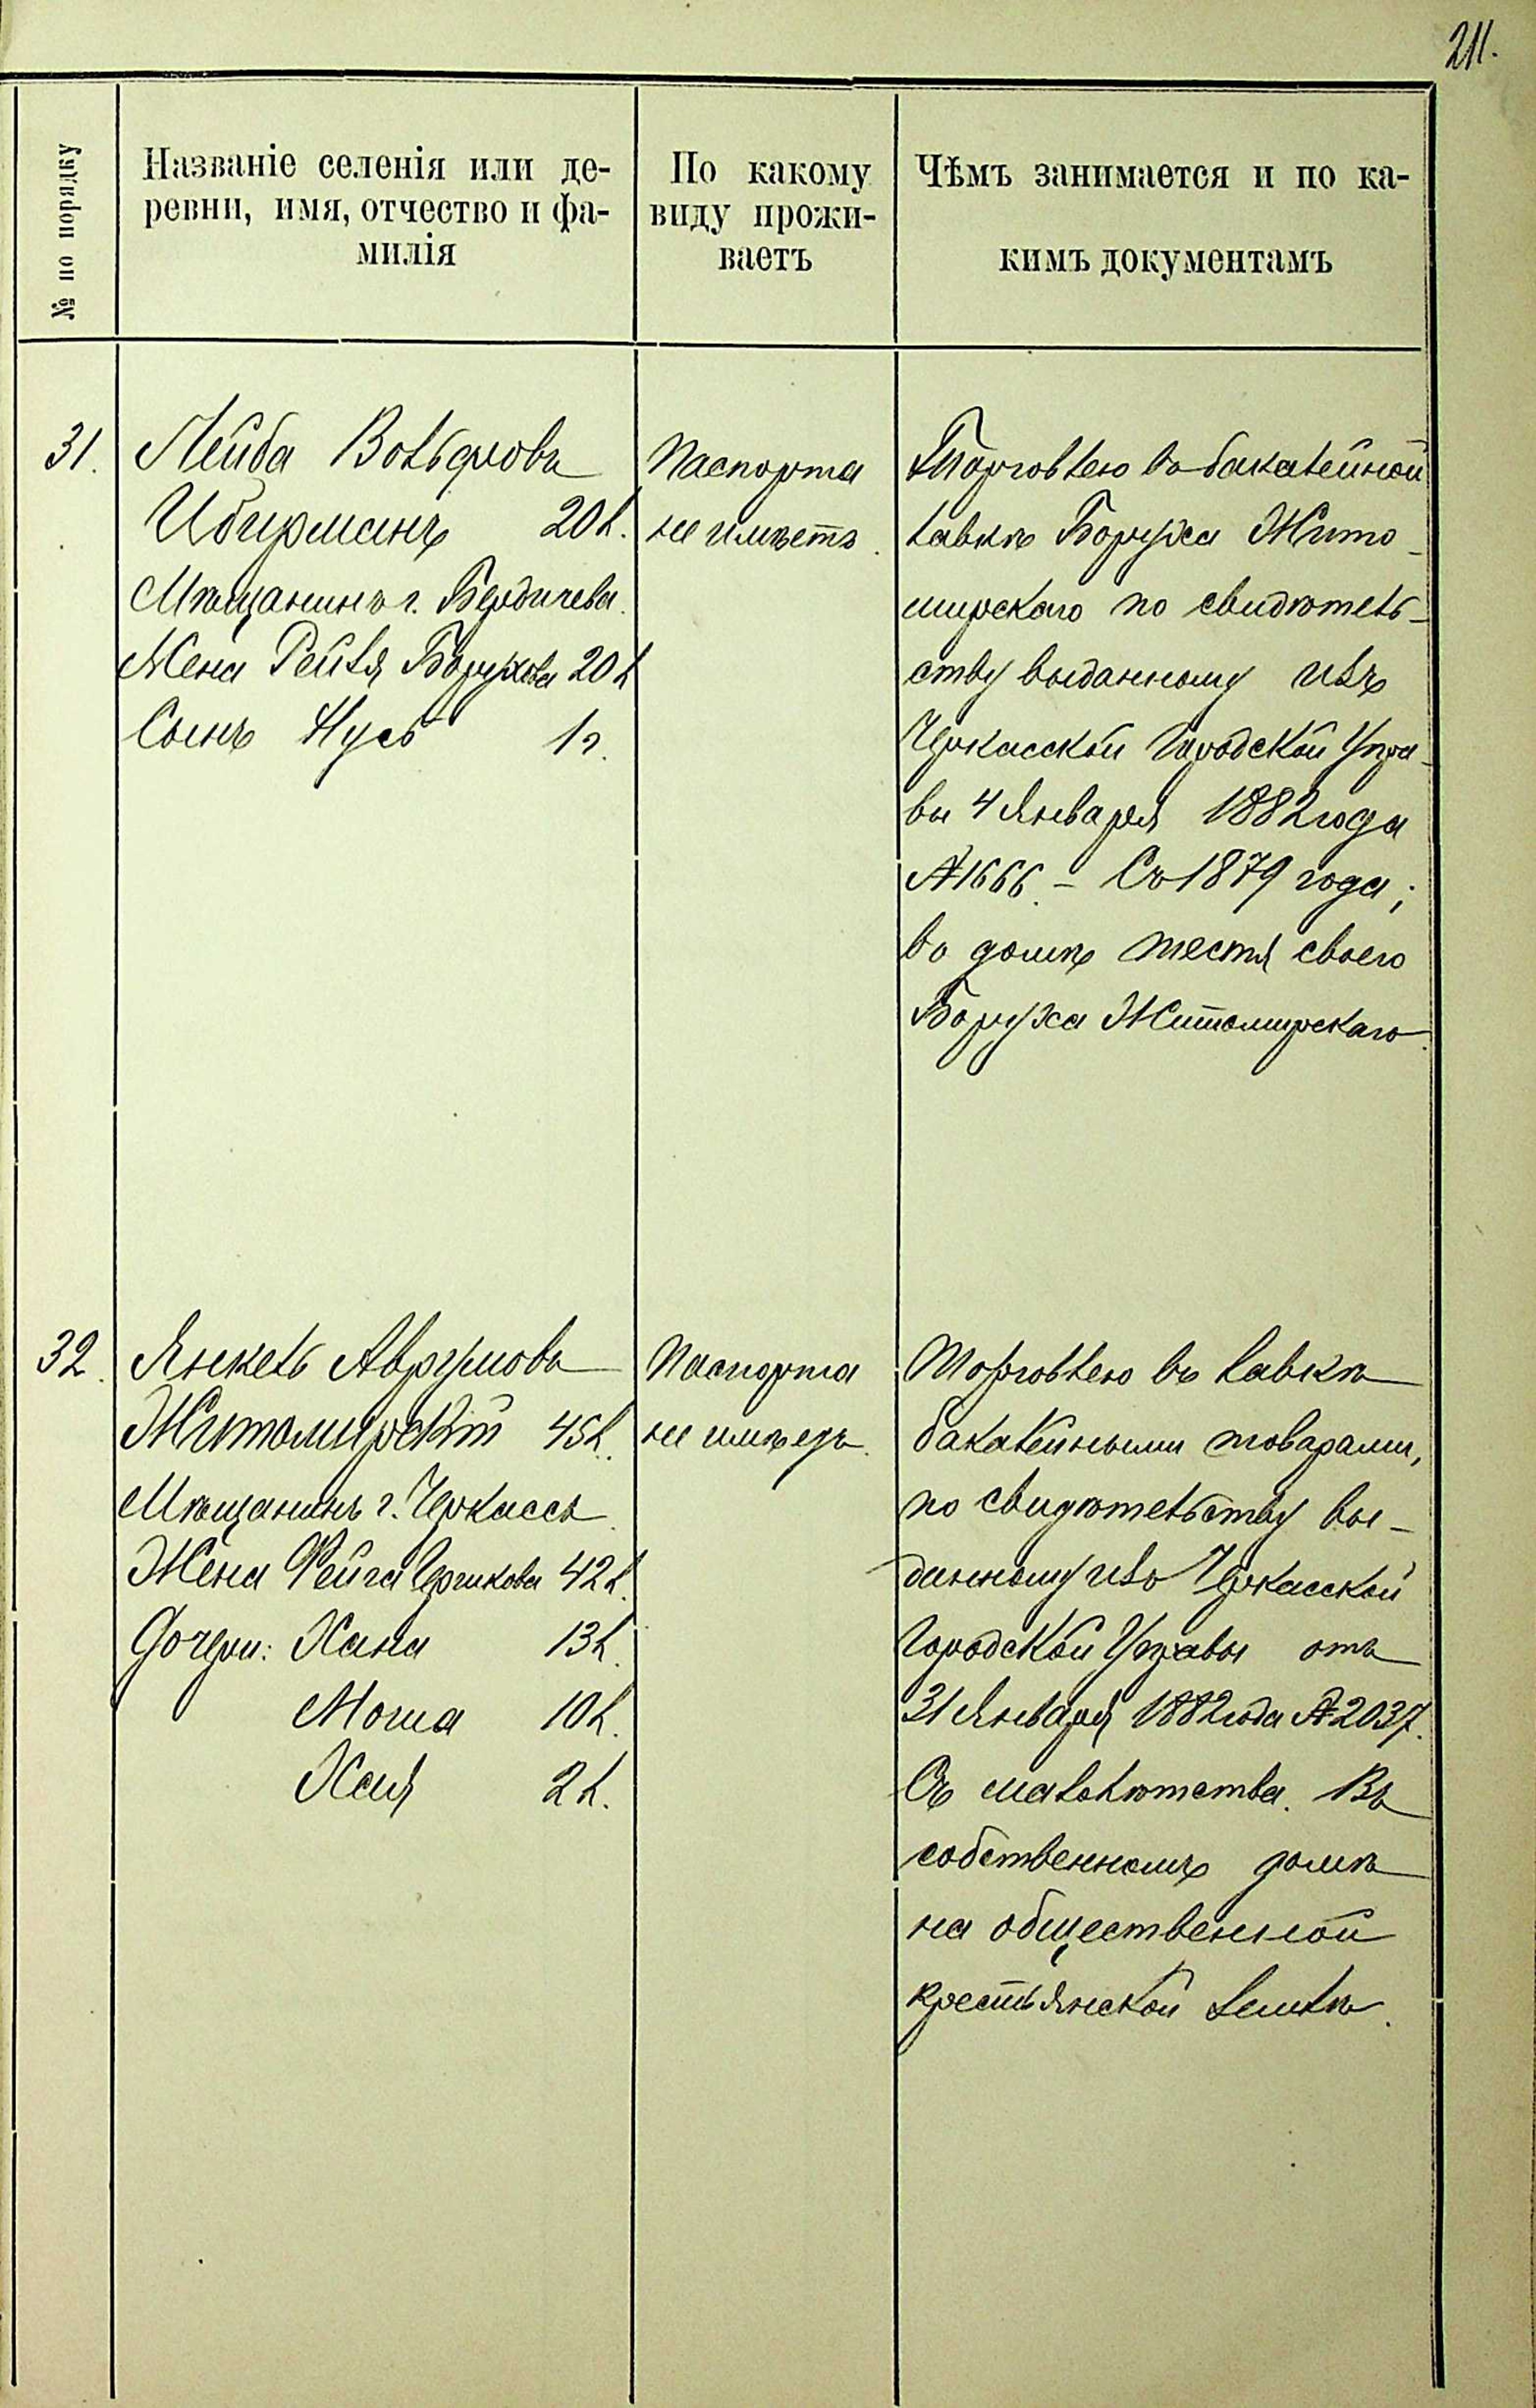 211.
№ по порядку
Названіе селенія или де-
ревни, имя, отчество и фа-
милія
По какому
виду прожи-
ваетъ
Чѣмъ занимается и по ка-
кимъ документамъ
31.
Лейба Вольфовъ
20 л.
Мѣщанинъ г. Бердичева.
Жена Рейзя Борухова 20 л
Сынъ Нусь 1 г.
Паспорта
не имѣетъ.
Торговлею въ бакалейной
лавкѣ Боруха Жито-
мирскаго по свидѣтель-
ству выданному изъ
Черкасской Городской Упра-
вы 4 Января 1882 года
№ 1666. – Съ 1879 года;
въ домѣ тестя своего
Боруха Житомирскаго.
32.
Янкель Аврумовъ
Житомирскій 45 л.
Мѣщанинъ г. Черкассъ.
Жена Фейга 42 л.
Дочери: Хана 13 л.
10 л.
Хая 2 л.
Паспорта
не имѣетъ.
Торговлею въ лавкѣ
бакалейными товарами,
по свидѣтельству вы-
данному изъ Черкасской
Городской Управы отъ
31 Января 1882 года № 2037.
Съ малолѣтства. Въ
собственномъ домѣ
на общественной
крестьянской землѣ.